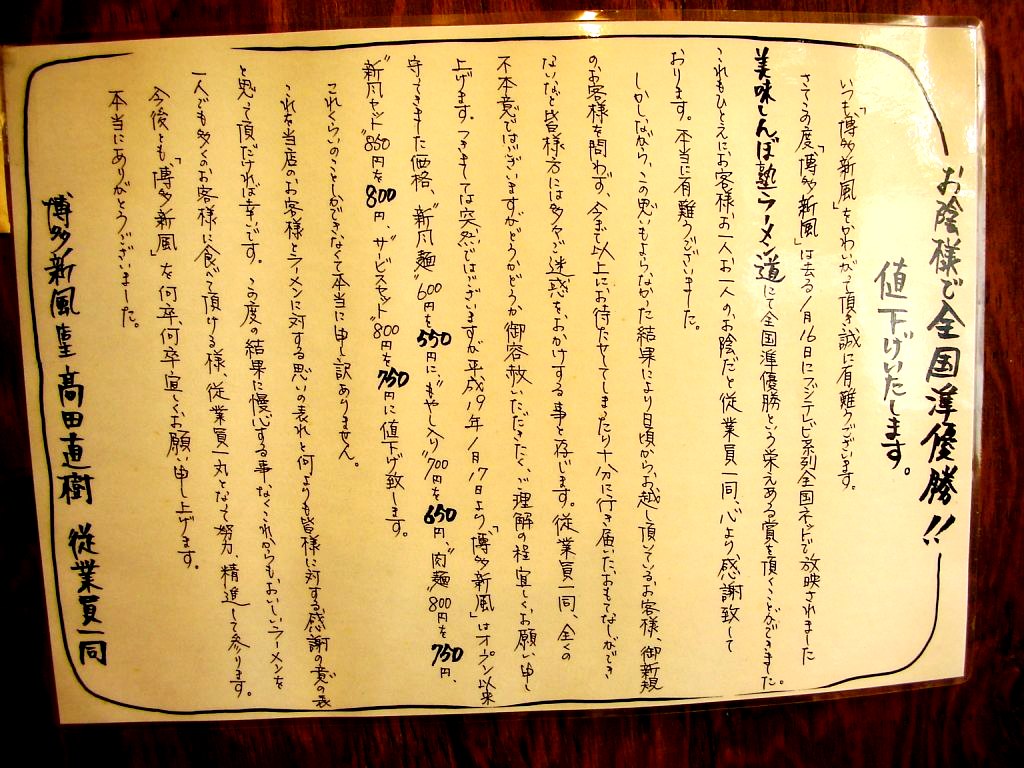 お陰様で全国準優勝!!
値下げいたします。
いつも「博多新風」をかわいがって頂き誠に有難うございます。
さてこの度「博多新風」は去る1月16日にフジテレビ系列全国ネットで放映されました
美味しんぼ塾ラーメン道にて全国準優勝という栄えある賞を頂くことができました。
これもひとえにお客様お一人お一人のお陰だと従業員一同、心より感謝致して
おります。本当に有難うございました。
しかしながら、この思いもよらなかった結果により日頃からお越し頂いているお客様、御新規
のお客様を問わず、今まで以上にお待たせてしまったり十分に行き届いたおもてなしができ
ないなど皆様方には多々ご迷惑をおかけする事と存じます。従業員一同、全くの
不本意ではございますがどうかどうか御容赦いただきたく、ご理解の程宜しくお願い申し
上げます。つきましては突然ではございますが平成19年1月17日より「博多新風」はオープン以来
守ってきました価格、“新風麺”600円を550円に“もやし入り”700円を650円、“肉麺”800円を750円、
“新風セット”860円を800円、“サービスセット”800円を750円に値下げ致します。
これくらいのことしかできなくて本当に申し訳ありません。
これを当店のお客様とラーメンに対する思いの表れと何よりも皆様に対する感謝の意の表
と思って頂ければ幸いです。この度の結果に慢心する事なくこれからもおいしいラーメンを
一人でも多くのお客様に食べて頂ける様、従業員一丸となって努力、精進して参ります。
今後とも「博多新風」を何卒、何卒宜しくお願い申し上げます。
本当にありがとうございました。
博多新風 店主 高田直樹 従業員一同